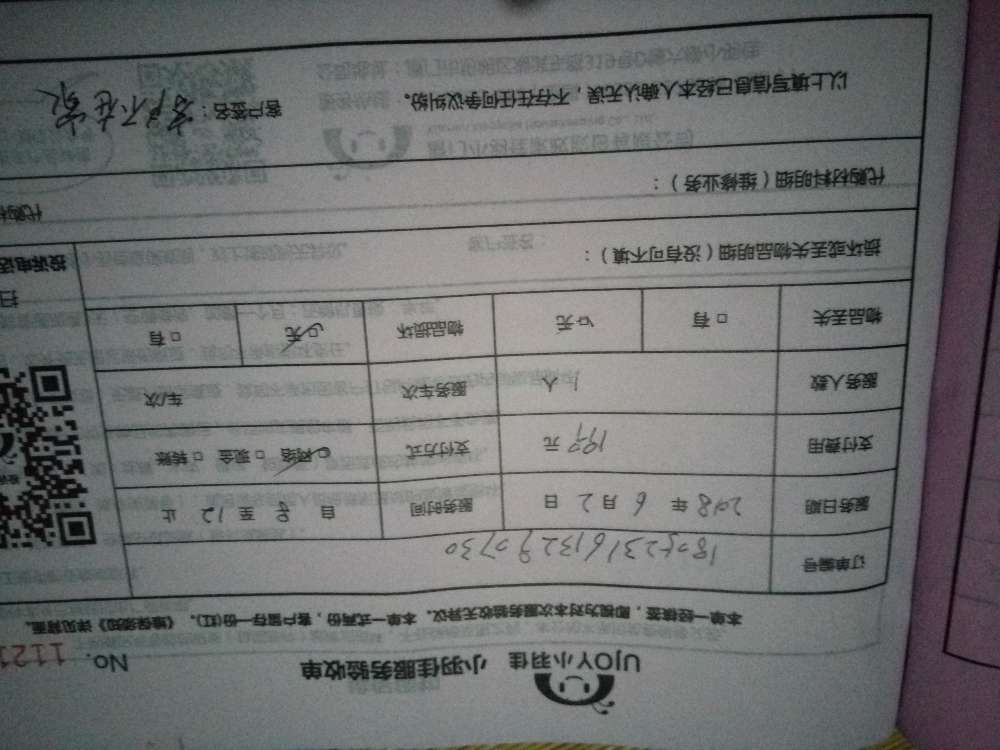 UJOY小羽佳 小羽佳服务验收单
No. 1121
本单一经核签，即视为对本次服务验收无异议。本单一式两份，客户留存一份(红)。《维保须知》详见背面。
订单编号
服务日期 2018 年 6 月 2 日 服务时间 自 8 至 12 止
支付费用 199 元 支付方式 网络 □ 现金 □ 转账
服务人数 1 人 服务车次 车/次
物品丢失 □ 有 □ 无 物品损坏 □ 无 □ 有
损坏或丢失物品明细（没有可不填）：
投诉电话
扫
代购材料明细（维修业务）：
代购材
以上填写信息已经本人确认无误，不存在任何争议纠纷。 客户签名：客户不在家